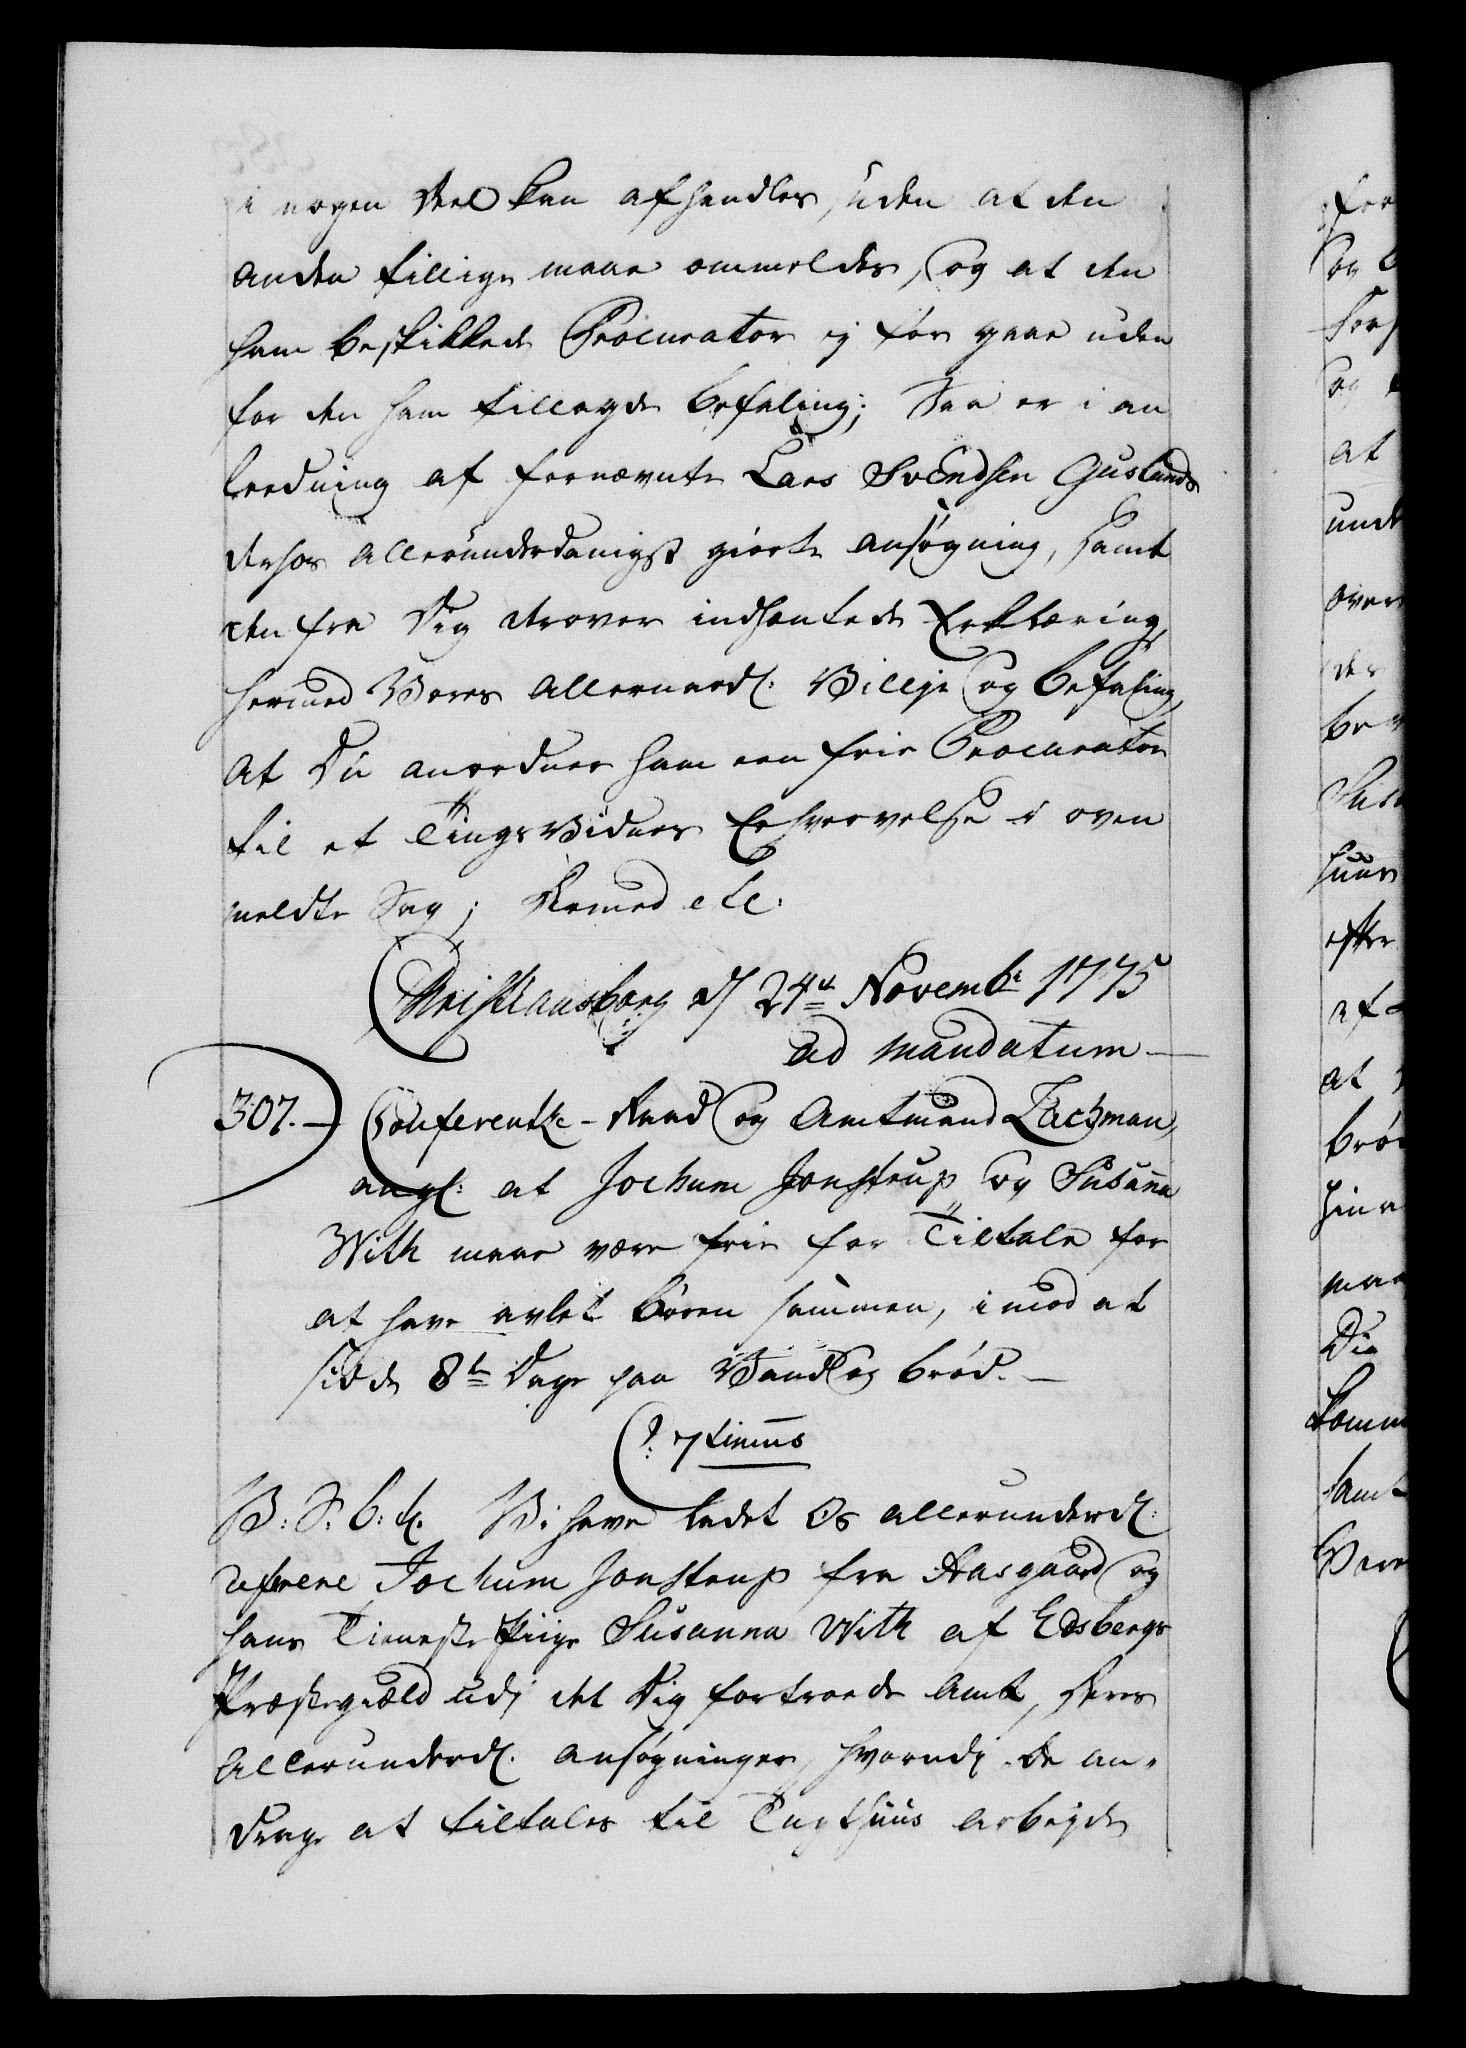 i nogen Deel kan afhandles, uden at den
anden tillige maae ommeldes, og at den
ham beskikkede Procurator ej tør gaae uden
for den ham tillagde befaling; Saa er i an
ledning af fornævnte Lars Svendsen Guslunds
derhos allerunderdanigst giorte ansøgning, samt
den fra Dig derover indhentede Erklæring,
hermed Vores allernaadl: Villje og befaling,
At Du anordner ham een frie Procurator
til et Tings Vidnes Erhvervelse i oven
meldte Sag; Dermed etc.
Christiansborg d 24de Novembr 1775
ad mandatum
307. Conferentz-Raad og Amtmand Zachman,
angl: at Jochum Jonstrup og Susanna
With maae være frie for Tiltale for
at have avlet børn sammen, imod at
sidde 8te Dage paa Vand og brød.
C: 7timus
V: S: b: t. Vi have ladet Os allerunderd:
referere Jochum Jonstrup fra Aasgaard og
hans Tieneste Piige Susanna With af Edsbergs
Præstegield udj det Dig fortroede Amt, deres
Allerunderd: ansøgninger, hvorudj De an-
drage at tiltales til Tugthuus arbejde